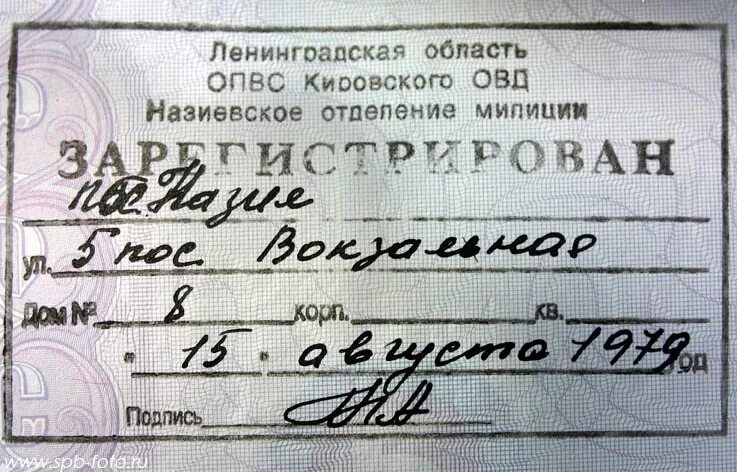 Ленинградская область
ОПВС Кировского ОВД
Назиевское отделение милиции
ЗАРЕГИСТРИРОВАН
пос. Назия
ул. 5 пос Вокзальная
Дом № 8 корп. кв.
" 15 " августа 1979 год
Подпись
www.spb-foto.ru